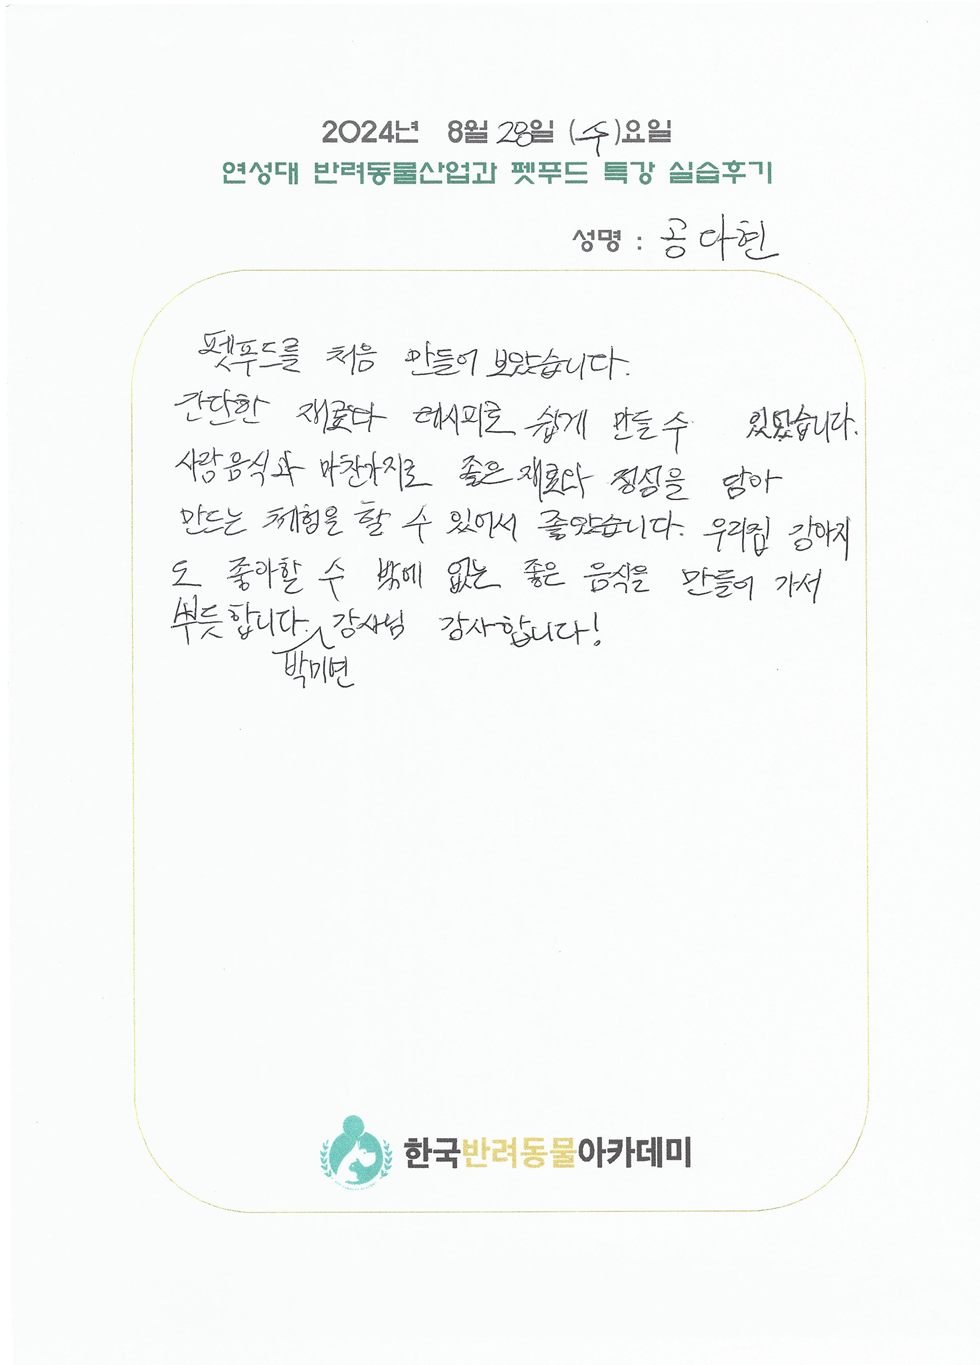 2024년 8월 28일 (수)요일
연성대 반려동물산업과 펫푸드 특강 실습후기
성명 : 공다현
펫푸드를 처음 만들어 보았습니다.
간단한 재료와 레시피로 쉽게 만들 수 있었습니다.
사람 음식과 마찬가지로 좋은 재료와 정성을 담아
만드는 체험을 할 수 있어서 좋았습니다. 우리집 강아지
도 좋아할 수 밖에 없는 좋은 음식을 만들어 가서
뿌듯합니다. 강사님 감사합니다!
박미연
한국반려동물아카데미